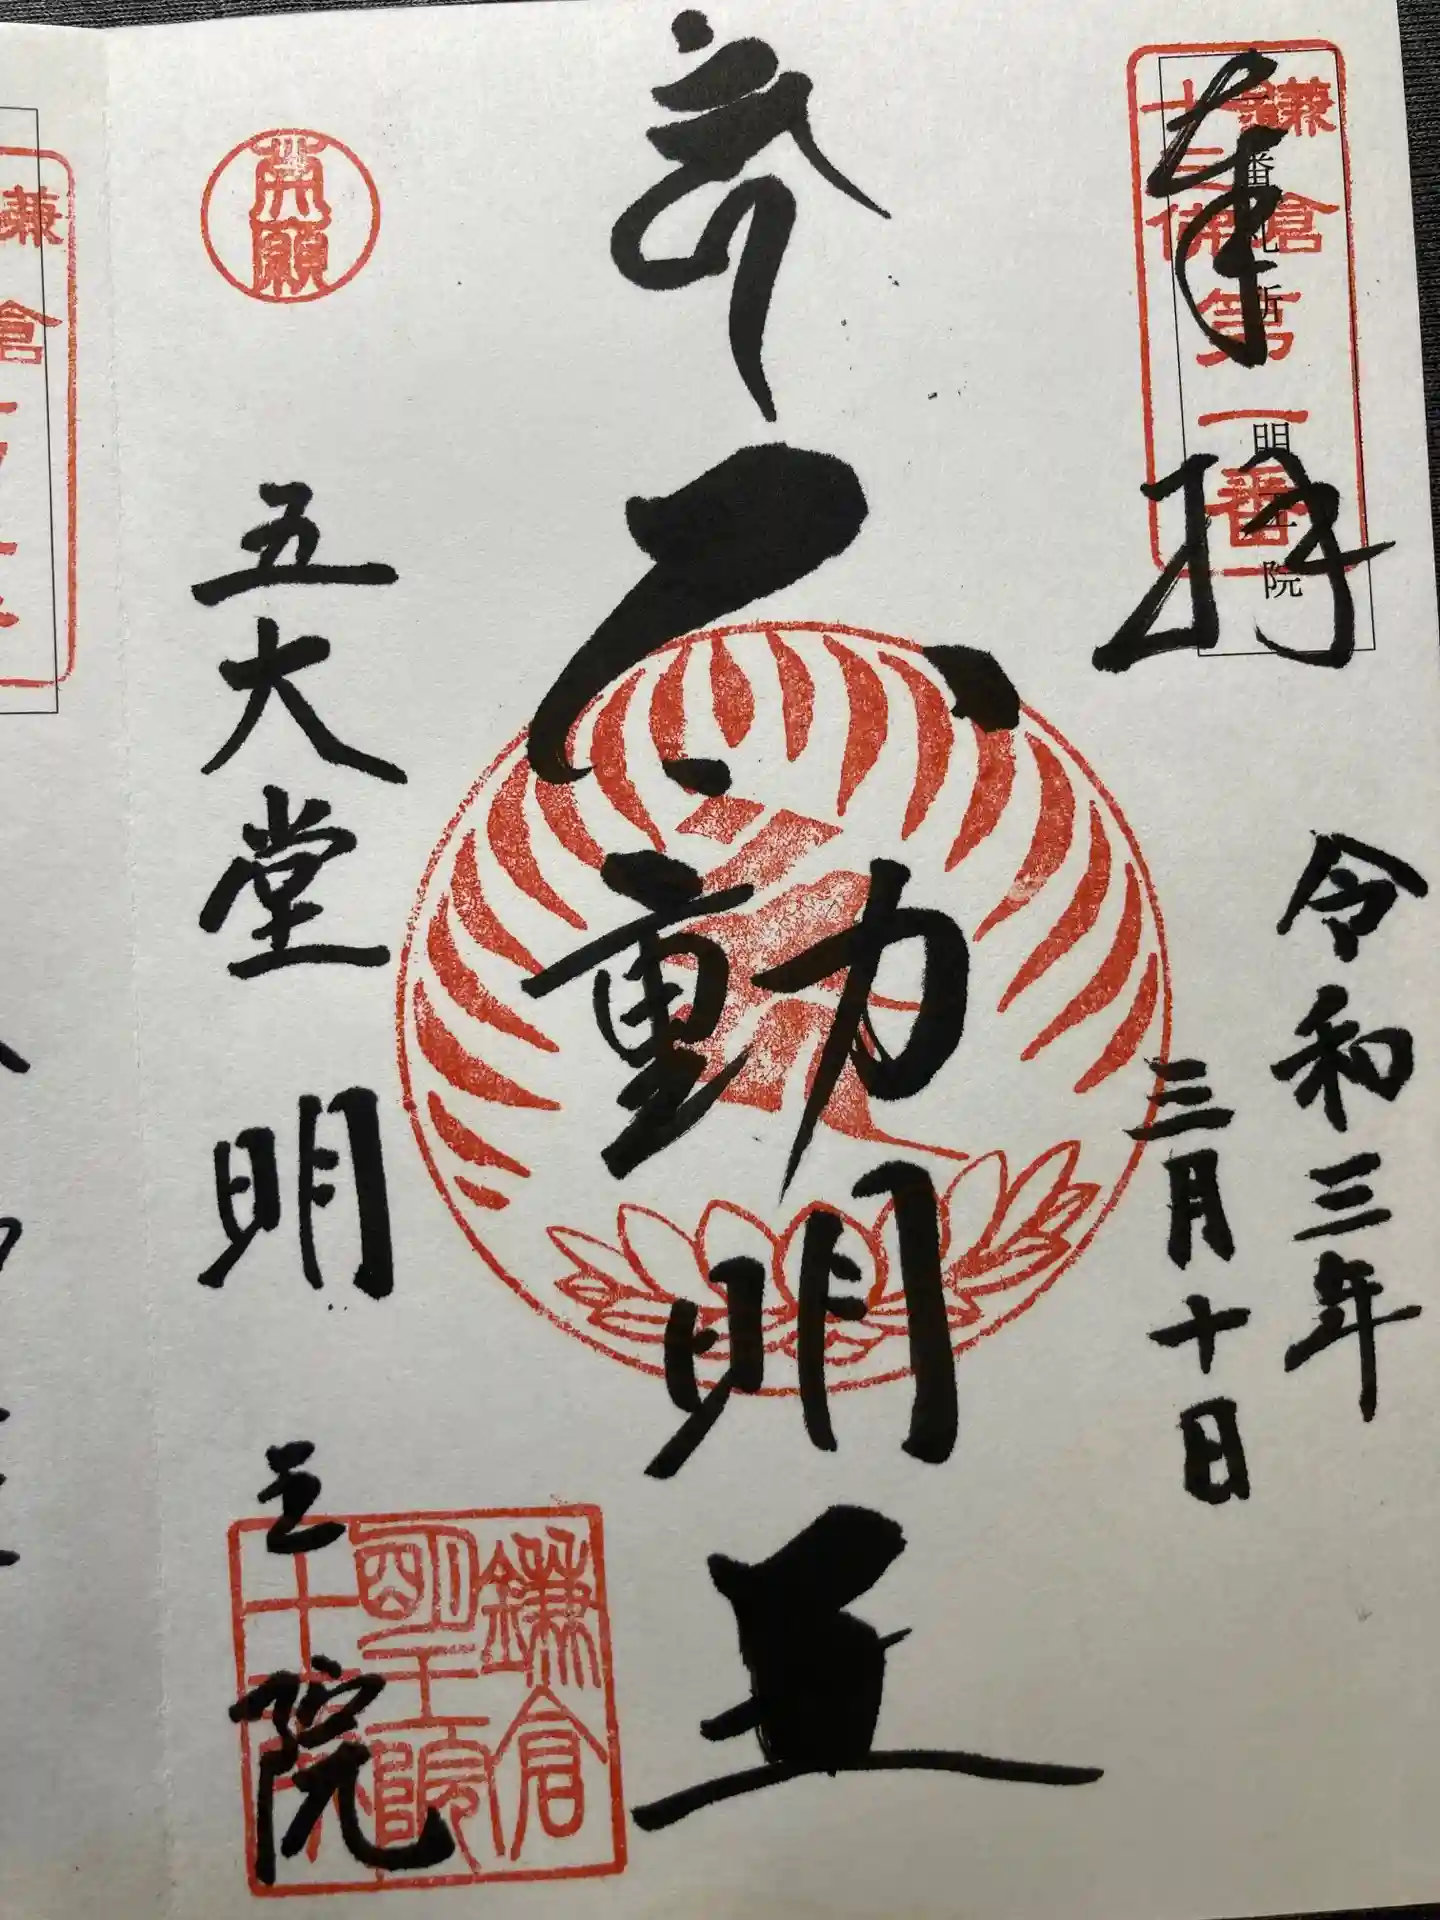 奉拝
鎌倉
十三佛
第一番
番札所
明王院
令和三年
三月十日
不動明王
五大堂
明王院
鎌倉
明王院
鎌倉